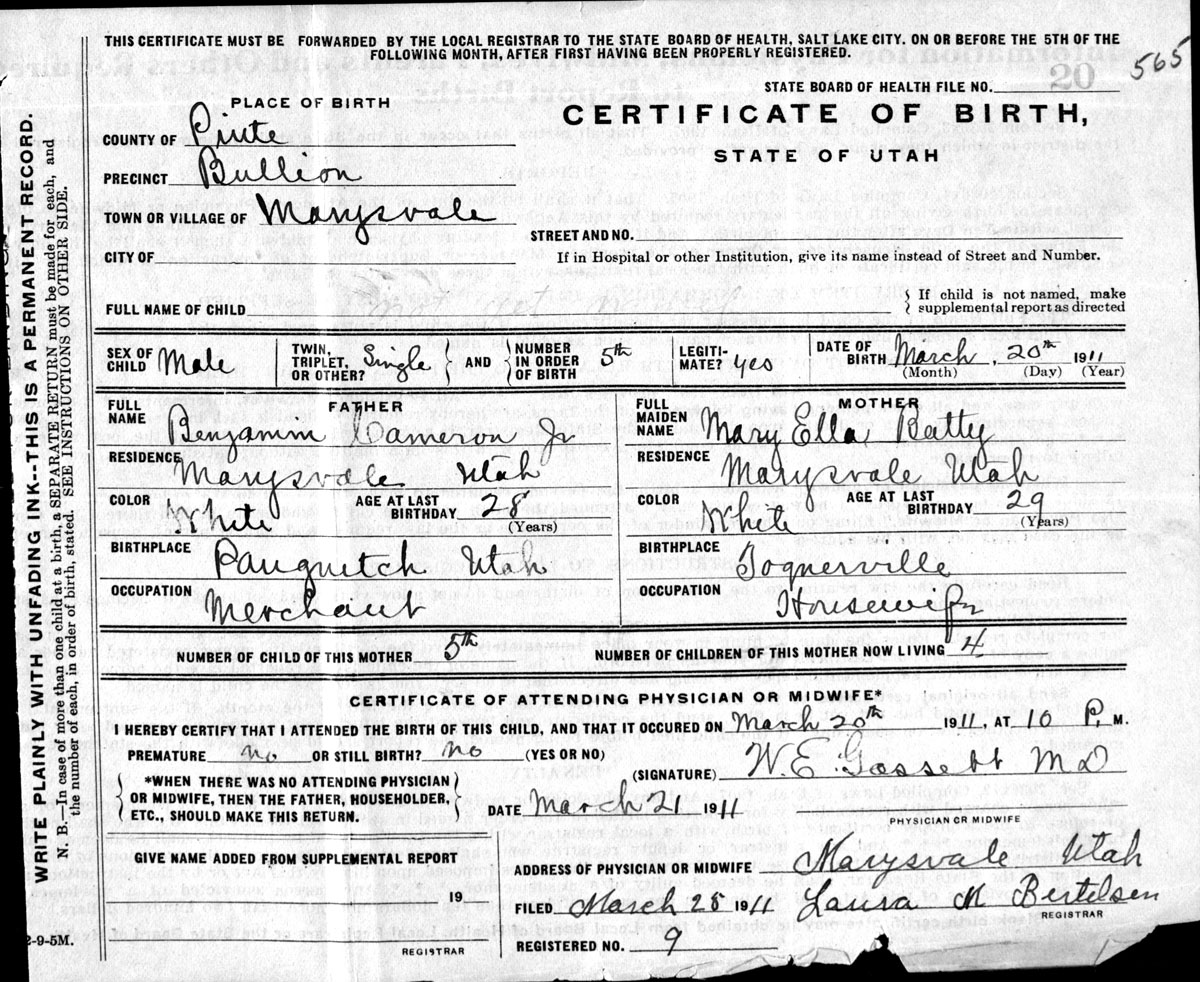 THIS CERTIFICATE MUST BE FORWARDED BY THE LOCAL REGISTRAR TO THE STATE BOARD OF HEALTH, SALT LAKE CITY. ON OR BEFORE THE 5TH OF THE
FOLLOWING MONTH, AFTER FIRST HAVING BEEN PROPERLY REGISTERED.
565
20
STATE BOARD OF HEALTH FILE NO.
PLACE OF BIRTH
CERTIFICATE OF BIRTH,
STATE OF UTAH
COUNTY OF Piute
PRECINCT Bullion
TOWN OR VILLAGE OF Marysvale
STREET AND NO.
CITY OF
If in Hospital or other Institution, give its name instead of Street and Number.
FULL NAME OF CHILD
If child is not named, make
supplemental report as directed
SEX OF CHILD Male
TWIN, TRIPLET, OR OTHER? Single AND NUMBER IN ORDER OF BIRTH 5th
LEGITI-MATE? yes
DATE OF BIRTH March 20th 1911
(Month) (Day) (Year)
FATHER
FULL NAME Benjamin Cameron Jr
RESIDENCE Marysvale Utah
COLOR White AGE AT LAST BIRTHDAY 28
(Years)
BIRTHPLACE Panguitch Utah
OCCUPATION Merchant
MOTHER
FULL MAIDEN NAME Mary Ella Batty
RESIDENCE Marysvale Utah
COLOR White AGE AT LAST BIRTHDAY 29
(Years)
BIRTHPLACE Toquerville
OCCUPATION Housewife
NUMBER OF CHILD OF THIS MOTHER 5th NUMBER OF CHILDREN OF THIS MOTHER NOW LIVING 4
CERTIFICATE OF ATTENDING PHYSICIAN OR MIDWIFE*
I HEREBY CERTIFY THAT I ATTENDED THE BIRTH OF THIS CHILD, AND THAT IT OCCURRED ON March 20th 1911, AT 10 P. M.
PREMATURE no OR STILL BIRTH? no (YES OR NO)
*WHEN THERE WAS NO ATTENDING PHYSICIAN
OR MIDWIFE, THEN THE FATHER, HOUSEHOLDER,
ETC., SHOULD MAKE THIS RETURN.
(SIGNATURE) W. E. Gossett MD
DATE March 21 1911
PHYSICIAN OR MIDWIFE
GIVE NAME ADDED FROM SUPPLEMENTAL REPORT
19
REGISTRAR
ADDRESS OF PHYSICIAN OR MIDWIFE Marysvale Utah
FILED March 28 1911 Laura M Bertelsen
REGISTRAR
REGISTERED NO. 9
2-9-5M.
WRITE PLAINLY WITH UNFADING INK--THIS IS A PERMANENT RECORD.
N. B.—In case of more than one child at a birth, a SEPARATE RETURN must be made for each, and
the number of each, in order of birth, stated. SEE INSTRUCTIONS ON OTHER SIDE.